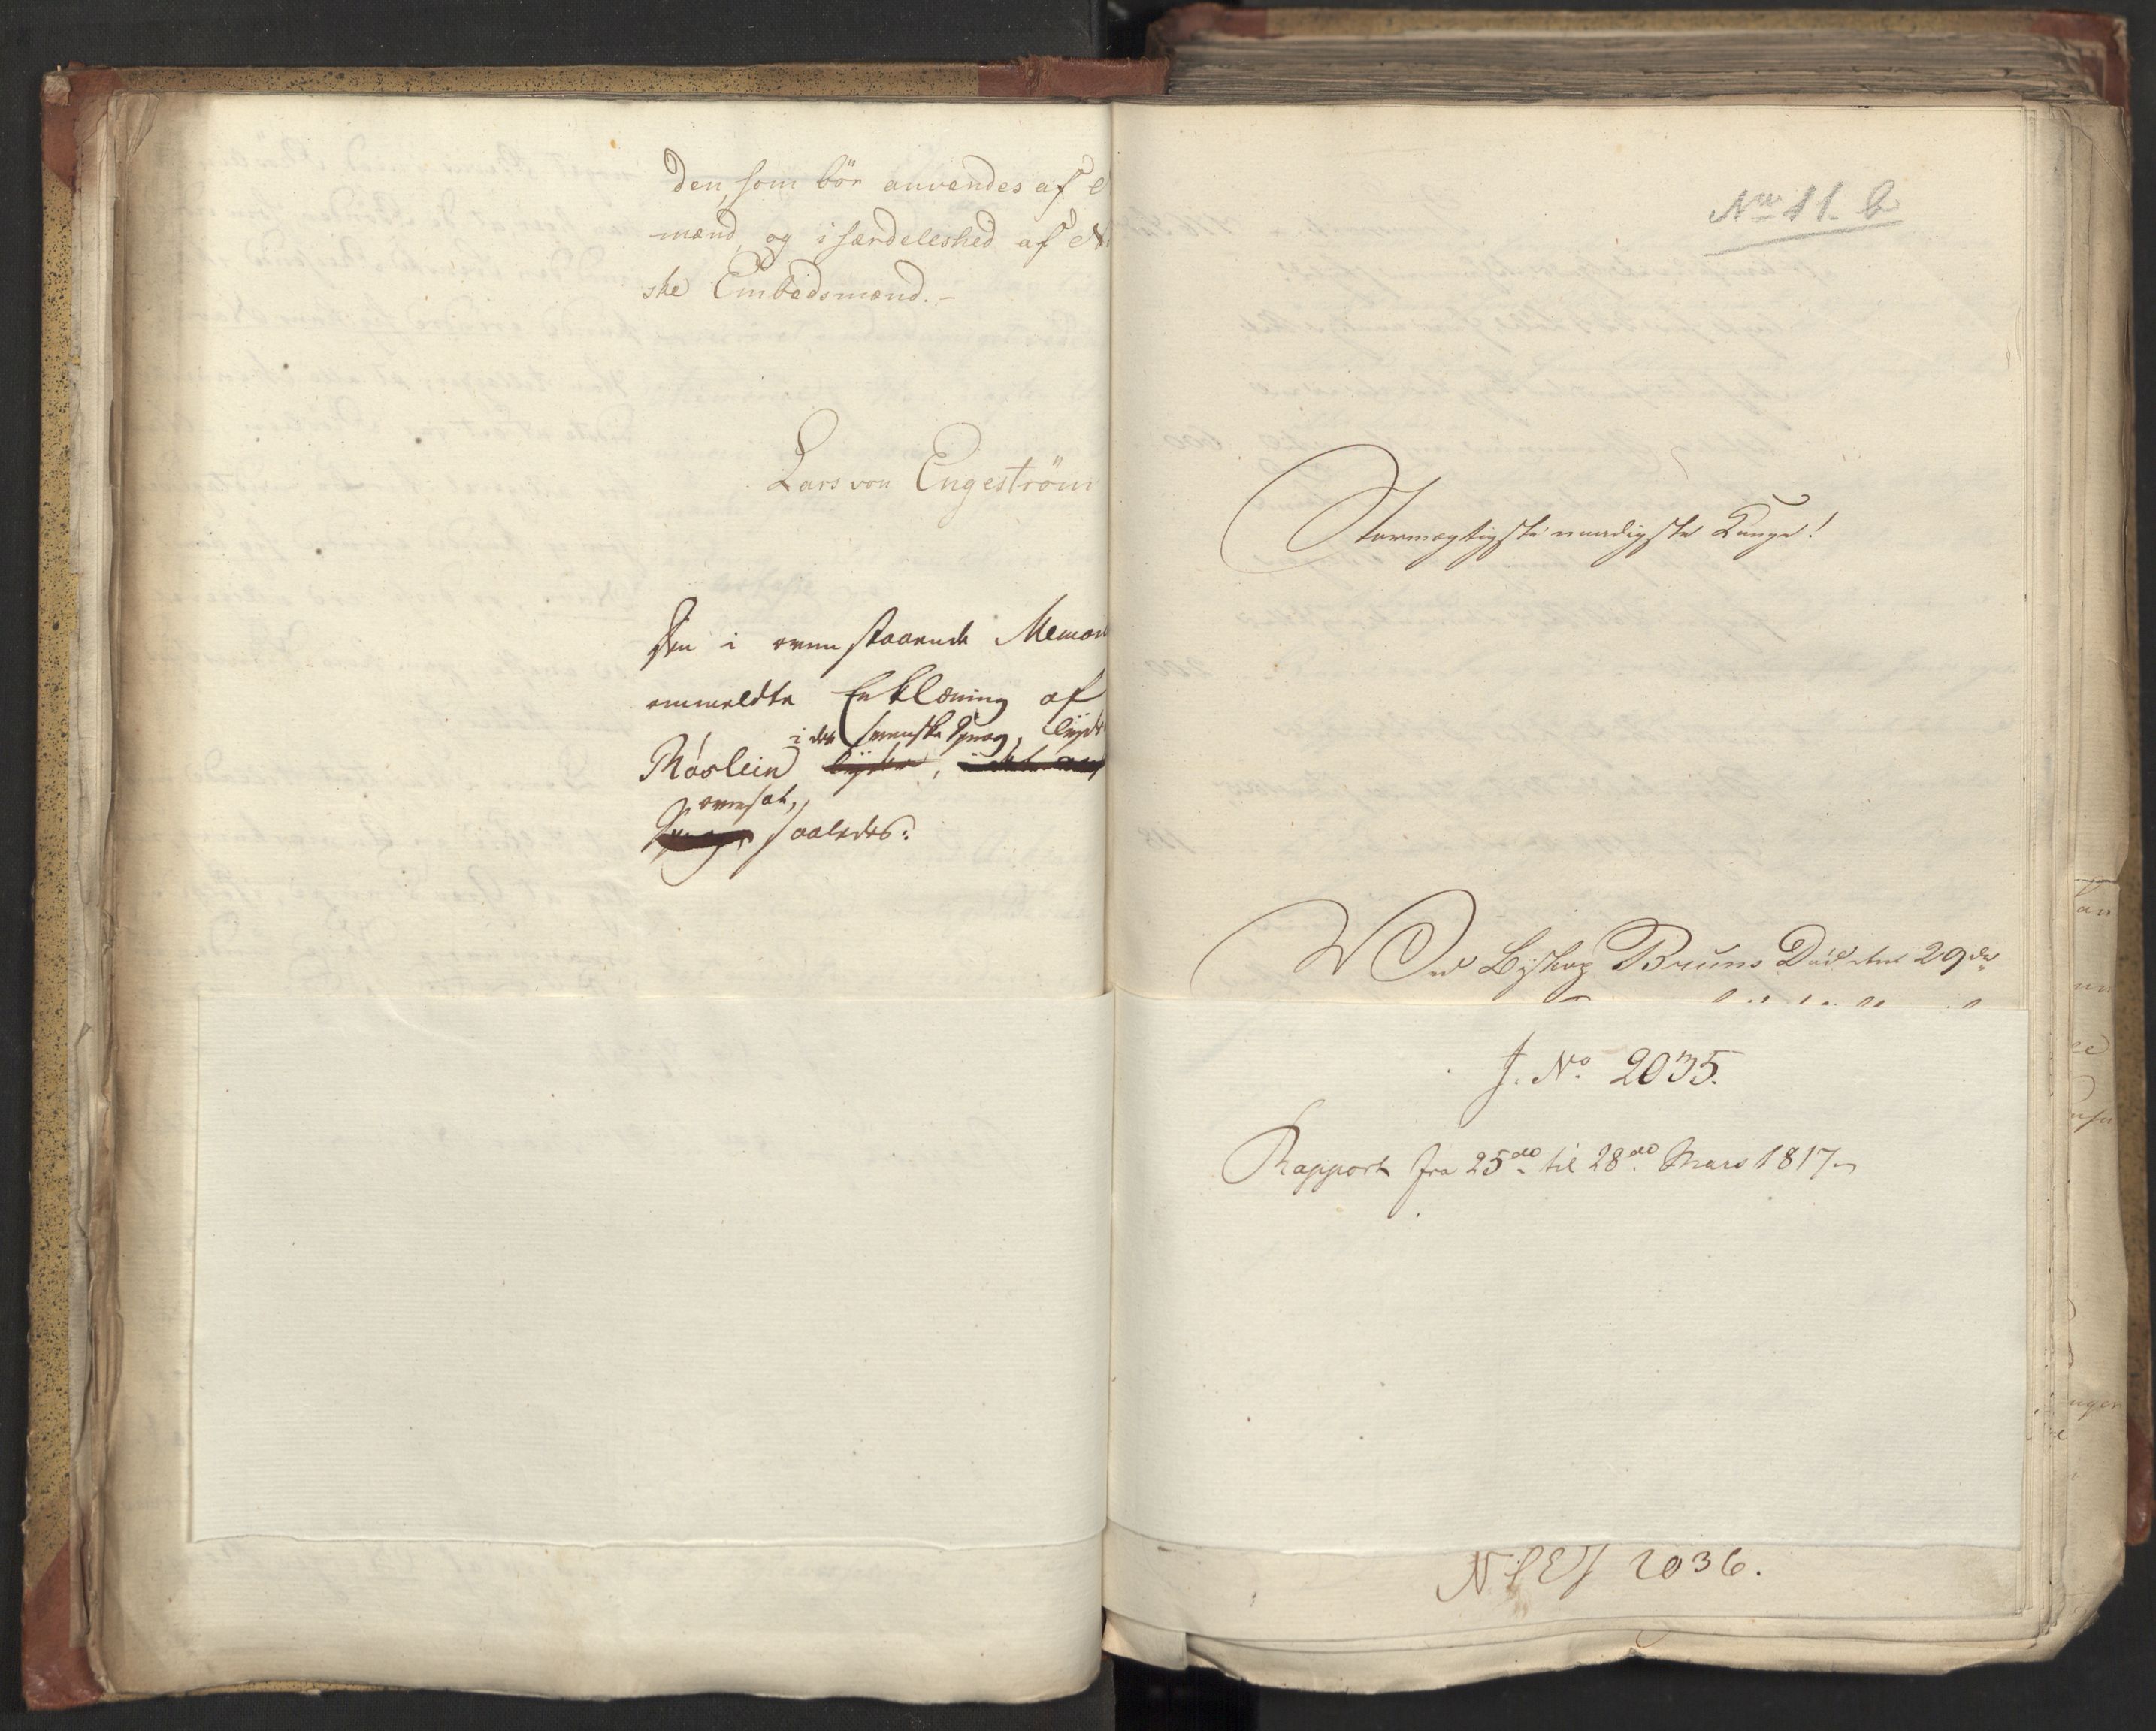 den, som bör anvendes af
mænd, og i særdeleshed af
ske Embedsmænd. -
Lars von Engeström
Den i ovenstaaende Memor
ommeldte Erklæring af
i det svenske Sprog, lyde
Röslein lyder,
oversat,
saaledes:
No 11. b
Stormægtigste naadigste Konge!
Ved Biskop Bruuns Död den 29de
J. No. 2035.
Rapport fra 25de til 28de Mars 1817
2036.